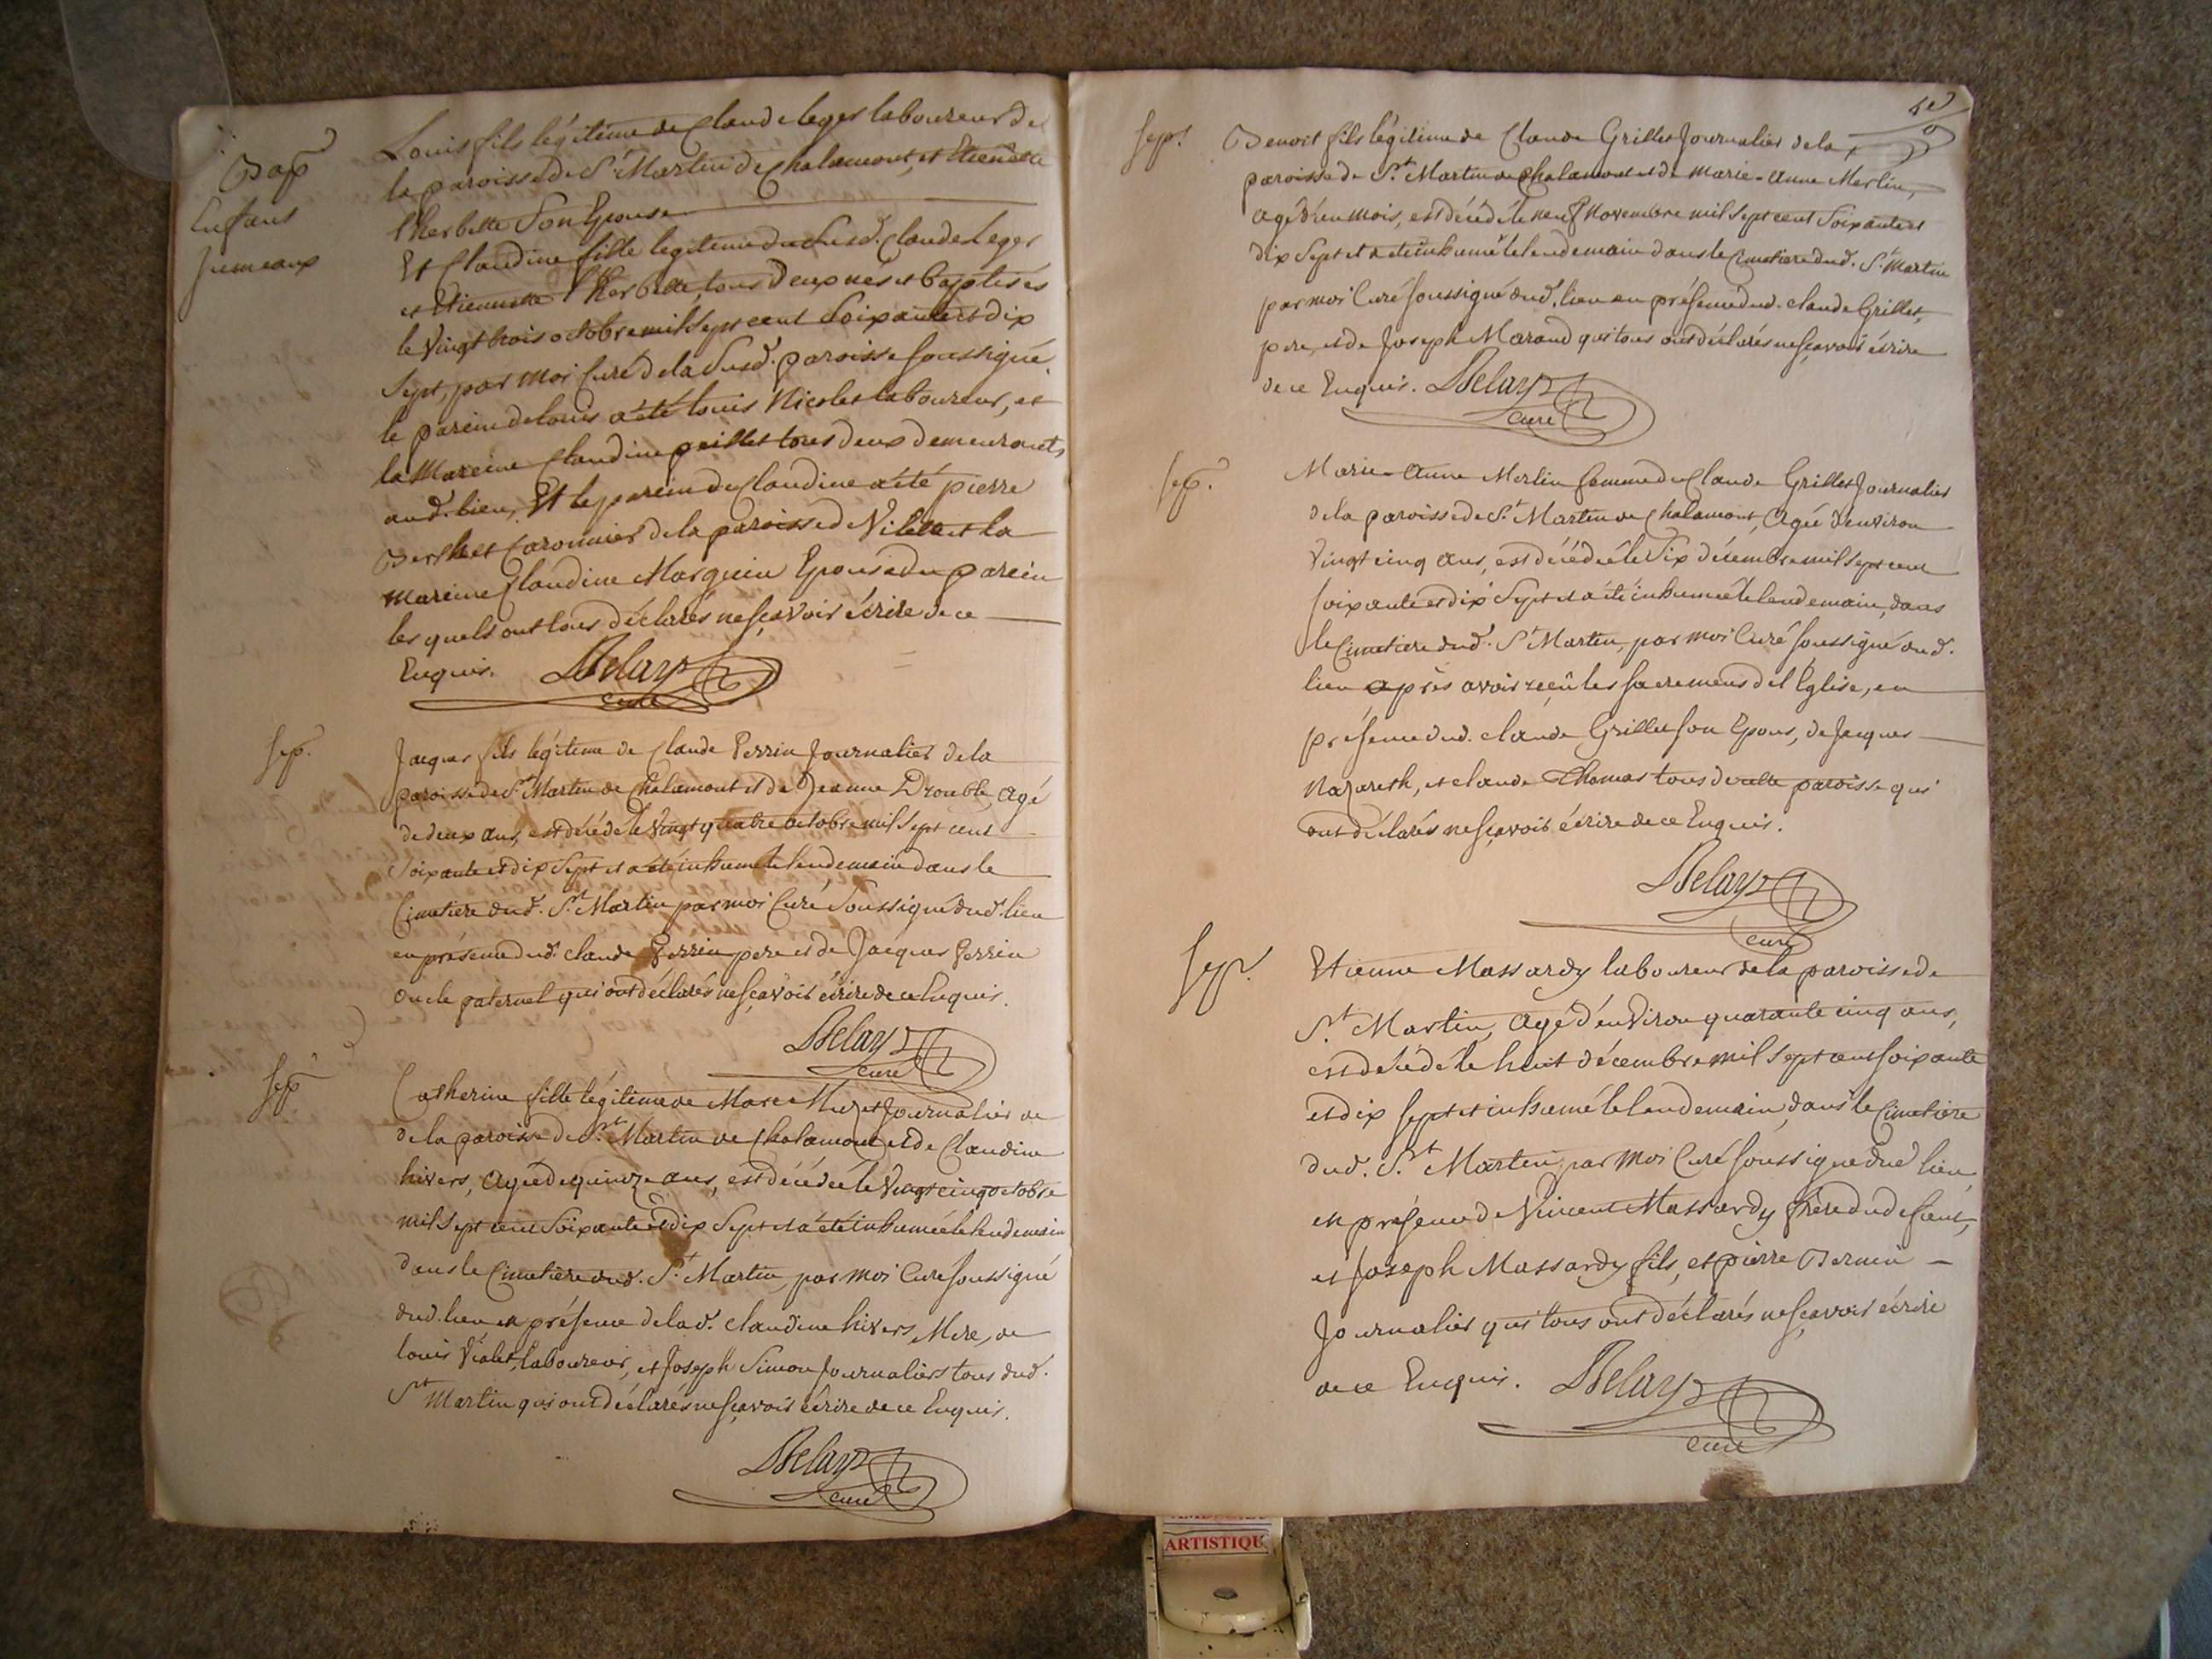 Bap
Enfans
Jumeaux
Louis fils légitime de Claude leger laboureur de
la paroisse de St. Martin de Chalamont, et Etiennette
l'herbette Son Epouse
Et Claudine fille legitime du Susd. Claude Leger
et Etiennette l'herbette, tous deux nés et baptisés
le Vingt trois octobre mil Sept cent Soixante et dix
Sept, par moi Curé de la Susd. paroisse soussigné.
le parein de louis a été louis Nicolet laboureur, et
la Mareine Claudine peillet tous deux demeurants
aud. lieu, Et le parein de Claudine a été pierre
Berthet Caronnier de la paroisse de Vilette et la
mareine Claudine Marguin Epouse du parein
les quels ont tous déclarés ne sçavoir écrire de ce
Enquis. Delay
curé
sep.
Jacques fils légitime de Claude Perrin Journalier de la
paroisse de St. Martin de Chalamont et de Jeanne Drouble, agé
de deux ans, est décédé le Vingt quatre octobre mil Sept cent
Soixante et dix Sept et a été inhumé le lendemain dans le
Cimetiere dud. St. Martin par moi Curé Soussigné dud. lieu
en présence dud. Claude Perrin pere et de Jacques Perrin
oncle paternel qui ont déclarés ne sçavoir écrire de ce Enquis.
Delay
curé
sep
Catherine fille légitime de Marc Journalier de
de la paroisse de St. Martin de Chalamont et de Claudine
hivers, agée de quinze ans, est décédée le Vingt cinq octobre
mil Sept cent Soixante et dix Sept et a été inhumée le lendemain
dans le Cimetiere dud. St. Martin, par moi Curé soussigné
dud. lieu en présence de la d. Claudine hivers, Mere, de
louis Vialet, laboureur, et Joseph Simon Journaliers tous dud.
St Martin qui ont déclarés ne sçavoir écrire de ce Enquis.
Delay
curé
sep.
Benoit fils légitime de Claude Grillet Journalier de la
paroisse de St. Martin de Chalamont et de Marie-Anne Merlin,
agé d'un mois, est décédé le neuf Novembre mil Sept cent Soixante et
dix Sept et a été inhumé le lendemain dans le Cimetiere dud. St. Martin
par moi Curé soussigné dud. lieu en présence dud. Claude Grillet,
pere, et de Joseph Marand qui tous ont déclarés ne sçavoir écrire
de ce Enquis. Delay
curé
sep.
Marie-Anne Merlin femme de Claude Grillet Journalier
de la paroisse de St. Martin de Chalamont, agée d'environ
Vingt cinq ans, est décédée le Six décembre mil Sept cent
soixante et dix Sept et a été inhumée le lendemain, dans
le Cimetiere dud. St Martin, par moi Curé soussigné dud.
lieu après avoir reçû les sacremens de l'Eglise, en
présence dud. Claude Grillet son Epous, de Jacques
Nazareth, et Claude Thomas tous de cette paroisse qui
ont déclarés ne sçavoir écrire de ce Enquis.
Delay
curé
sep.
Etienne Massardy laboureur de la paroisse de
St. Martin, agé d'environ quarante cinq ans,
est décédé le huit décembre mil Sept cent soixante
et dix sept et inhumé le lendemain, dans le Cimetiere
dud. St. Martin, par moi Curé soussigné dud. lieu,
en présence de Vincent Massardy frere du defunt,
et Joseph Massardy fils, et pierre Bernin
Journalier qui tous ont déclarés ne sçavoir écrire
de ce Enquis. Delay
curé
ARTISTIQU